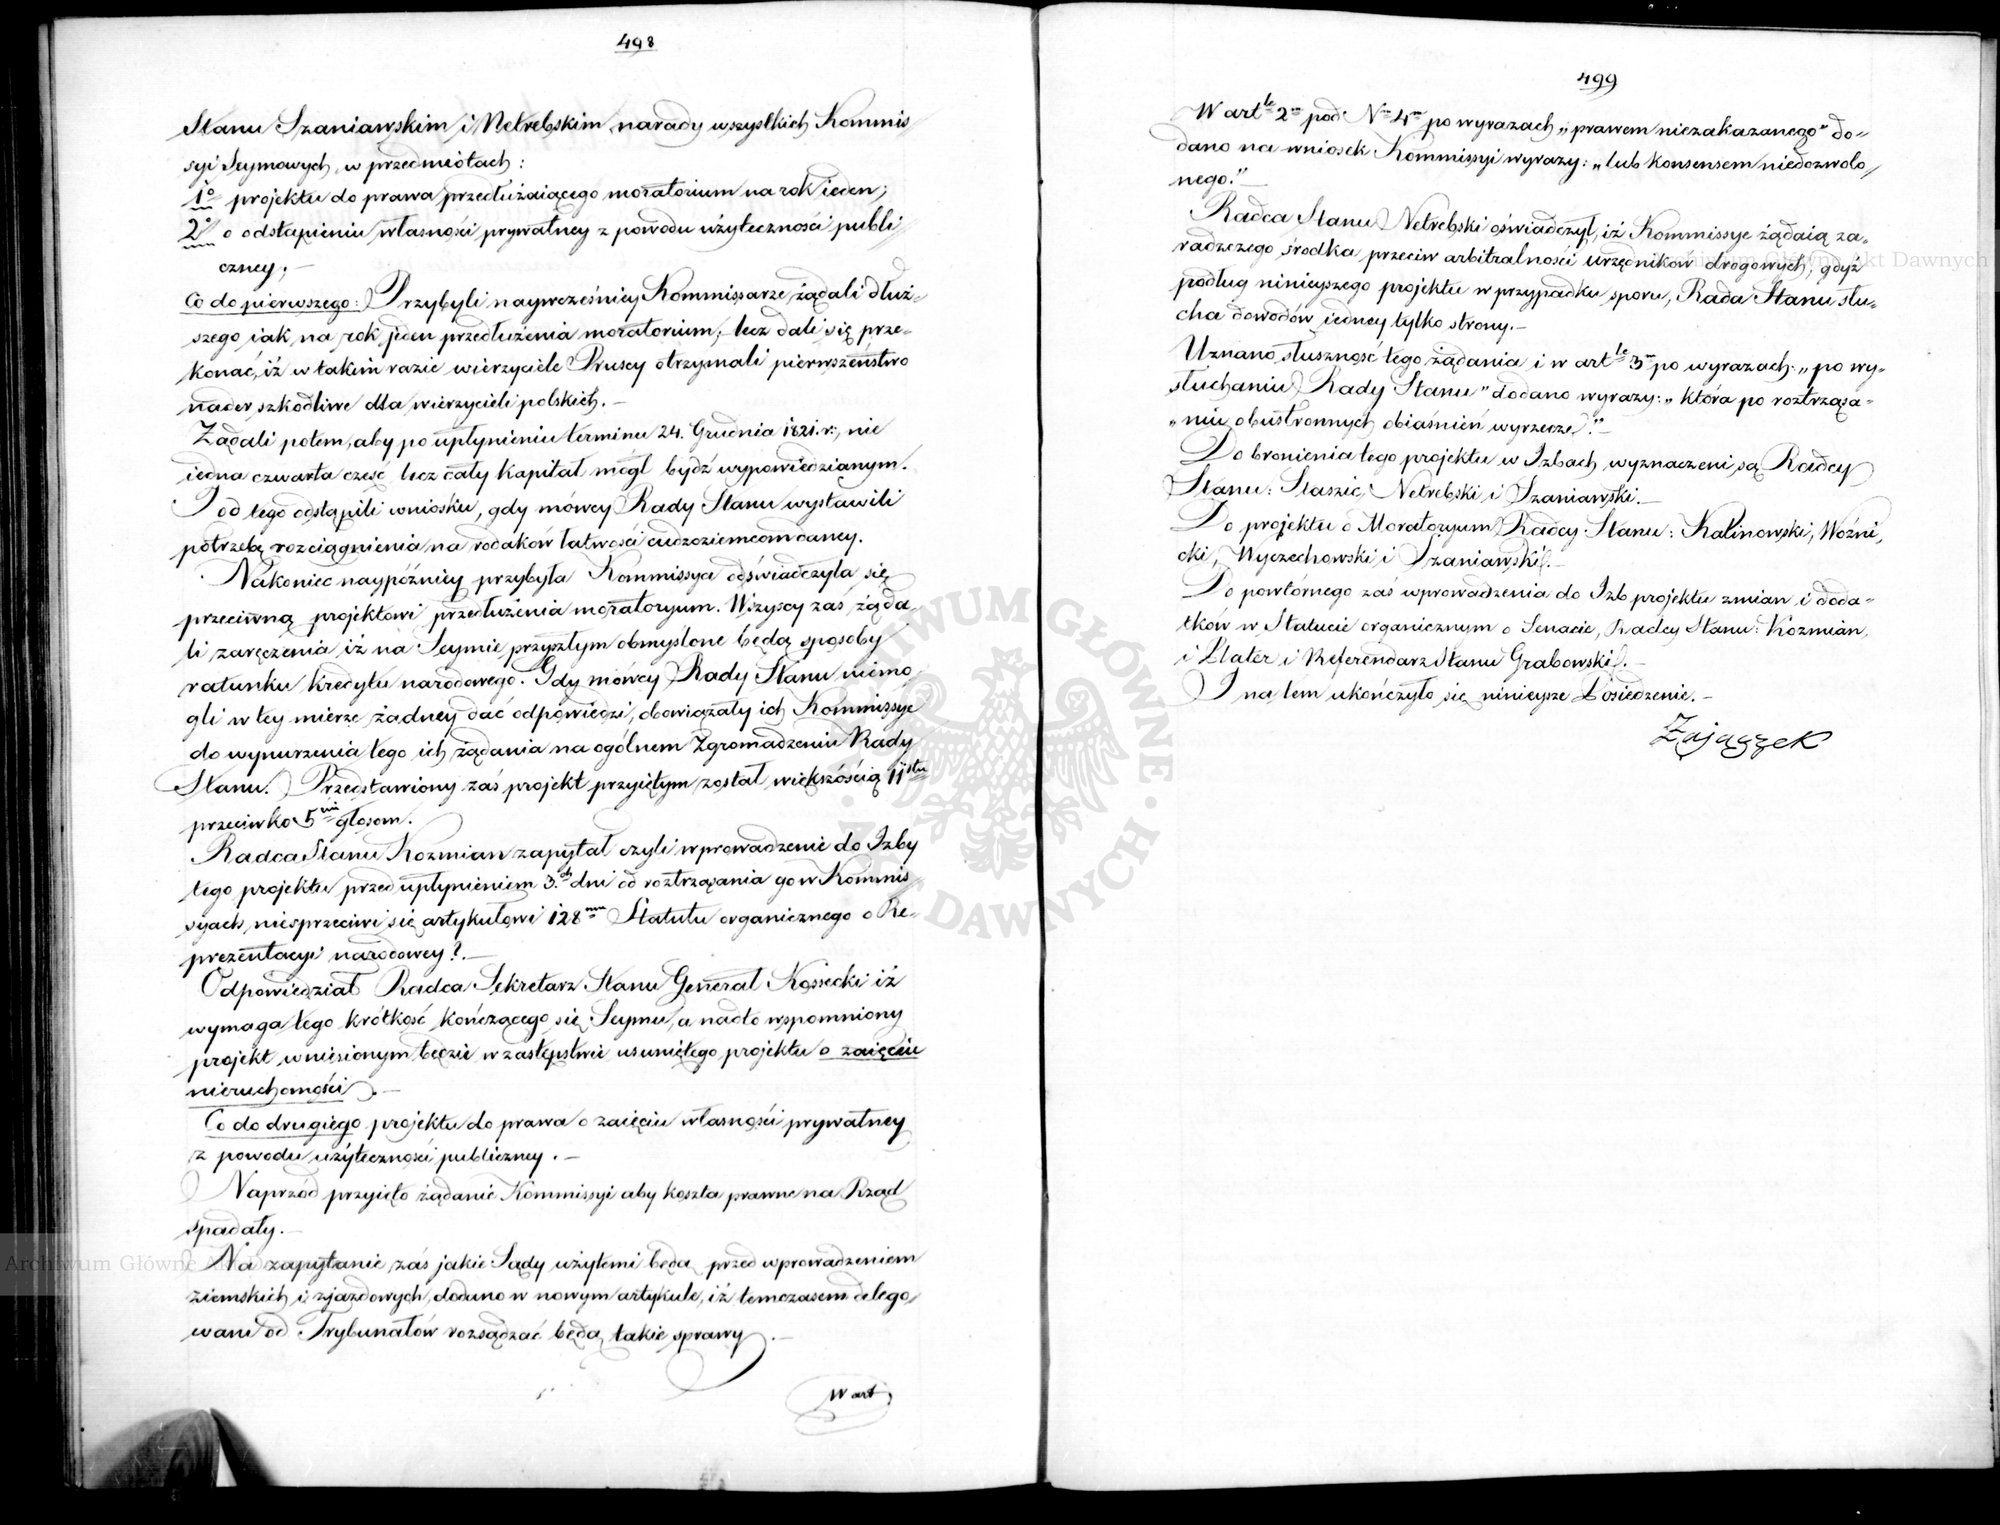 498
Stanu Szaniawskim i Netrebskim narady wszystkich Kommis
syi Seymowych, w przedmiotach:
1o projektu do prawa przedłużaiącego moratorium na rok ieden;
2o o odstąpieniu własności prywatney z powodu użyteczności publi
czney; –
Co do pierwszego: Przybyli naywcześniey Kommissarze, żądali dłuż-
szego iak na rok jeden przedłużenia moratorium; lecz dali się prze-
konać, iż w takim razie wierzyciele Pruscy otrzymali pierwszeństwo
nader szkodliwe dla wierzycieli polskich. –
Żądali potem, aby po upłynieniu terminu 24. Grudnia 1821. r., nie
iedna czwarta cześć lecz cały kapitał mógł bydź wypowiedzianym.
I od tego odstąpili wniosku, gdy mówcy Rady Stanu wystawili
potrzebę rozciągnienia na rodaków łatwości cudzoziemcom daney.
Nakoniec naypóźniey przybyła Kommissya oświadczyła się
przeciwną projektowi przedłużenia moratoryum. Wszyscy zaś żąda-
li zaręczenia iż na Seymie przyszłym obmyślone będą sposoby
ratunku kredytu narodowego. Gdy mówcy Rady Stanu niemo
gli w tey mierze żadney dać odpowiedzi, obowiązały ich Kommissye
do wynurzenia tego ich żądania na ogólnem Zgromadzeniu Rady
Stanu. Przedstawiony zaś projekt przyiętym został większością 11stu
przeciwko 5ciu głosom.
Radca Stanu Kozmian zapytał czyli wprowadzenie do Izby
tego projektu przed upłynieniem 3.ch dni od roztrząsania go w Kommis
syach, niesprzeciwi się artykułowi 128mu Statutu organicznego o Re-
prezentacyi narodowey? –
Odpowiedział Radca Sekretarz Stanu Generał Kossecki iż
wymaga tego krótkość kończącego się Seymu, a nadto wspomniony
projekt wniesionym będzie w zastępstwie usuniętego projektu o zaięciu
nieruchomości. –
Co do drugiego projektu do prawa o zaięciu własności prywatney
z powodu użyteczności publiczney. –
Naprzód przyięto żądanie Kommissyi aby koszta prawne na Rząd
spadały. –
Na zapytanie zaś jakie Sądy użytemi będą przed wprowadzeniem
ziemskich i zjazdowych, dodano w nowym artykule, iż temczasem delego
wani od Trybunałów rozsądzać będą takie sprawy. –
W art
499
W artle 2m pod Nm 4m po wyrazach „prawem niezakazanego" do-
dano na wniosek Kommissyi wyrazy: „lub konsensem niedozwolo
nego." –
Radca Stanu Netrebski oświadczył, iż Kommissye żądaią za-
radczego środka przeciw arbitralności urzędników drogowych, gdyż
podług ninieyszego projektu w przypadku sporu, Rada Stanu słu-
cha dowodów iedney tylko strony. –
Uznano słuszność tego żądania i w artle 3m po wyrazach: „po wy-
słuchaniu Rady Stanu" dodano wyrazy: „która po roztrząsa-
„niu obustronnych obiaśnień wyrzecze." –
Do bronienia tego projektu w Izbach wyznaczeni są Radcy
Stanu: Staszic, Netrebski i Szaniawski. –
Do projektu o Moratoryum Radcy Stanu: Kalinowski, Woźni,
cki, Wyczechowski i Szaniawski. –
Do powtórnego zaś wprowadzenia do Izb projektu zmian i doda-
tków w Statucie organicznym o Senacie, Radcy Stanu: Kozmian,
i Plater i Referendarz Stanu Grabowski. –
I na tem ukończyło się ninieysze Posiedzenie. –
Zajączek
Archiwum Główne Akt Dawnych
Archiwum Główne Akt D
ARCHIWUM GŁÓWNE · AKT DAWNYCH ·